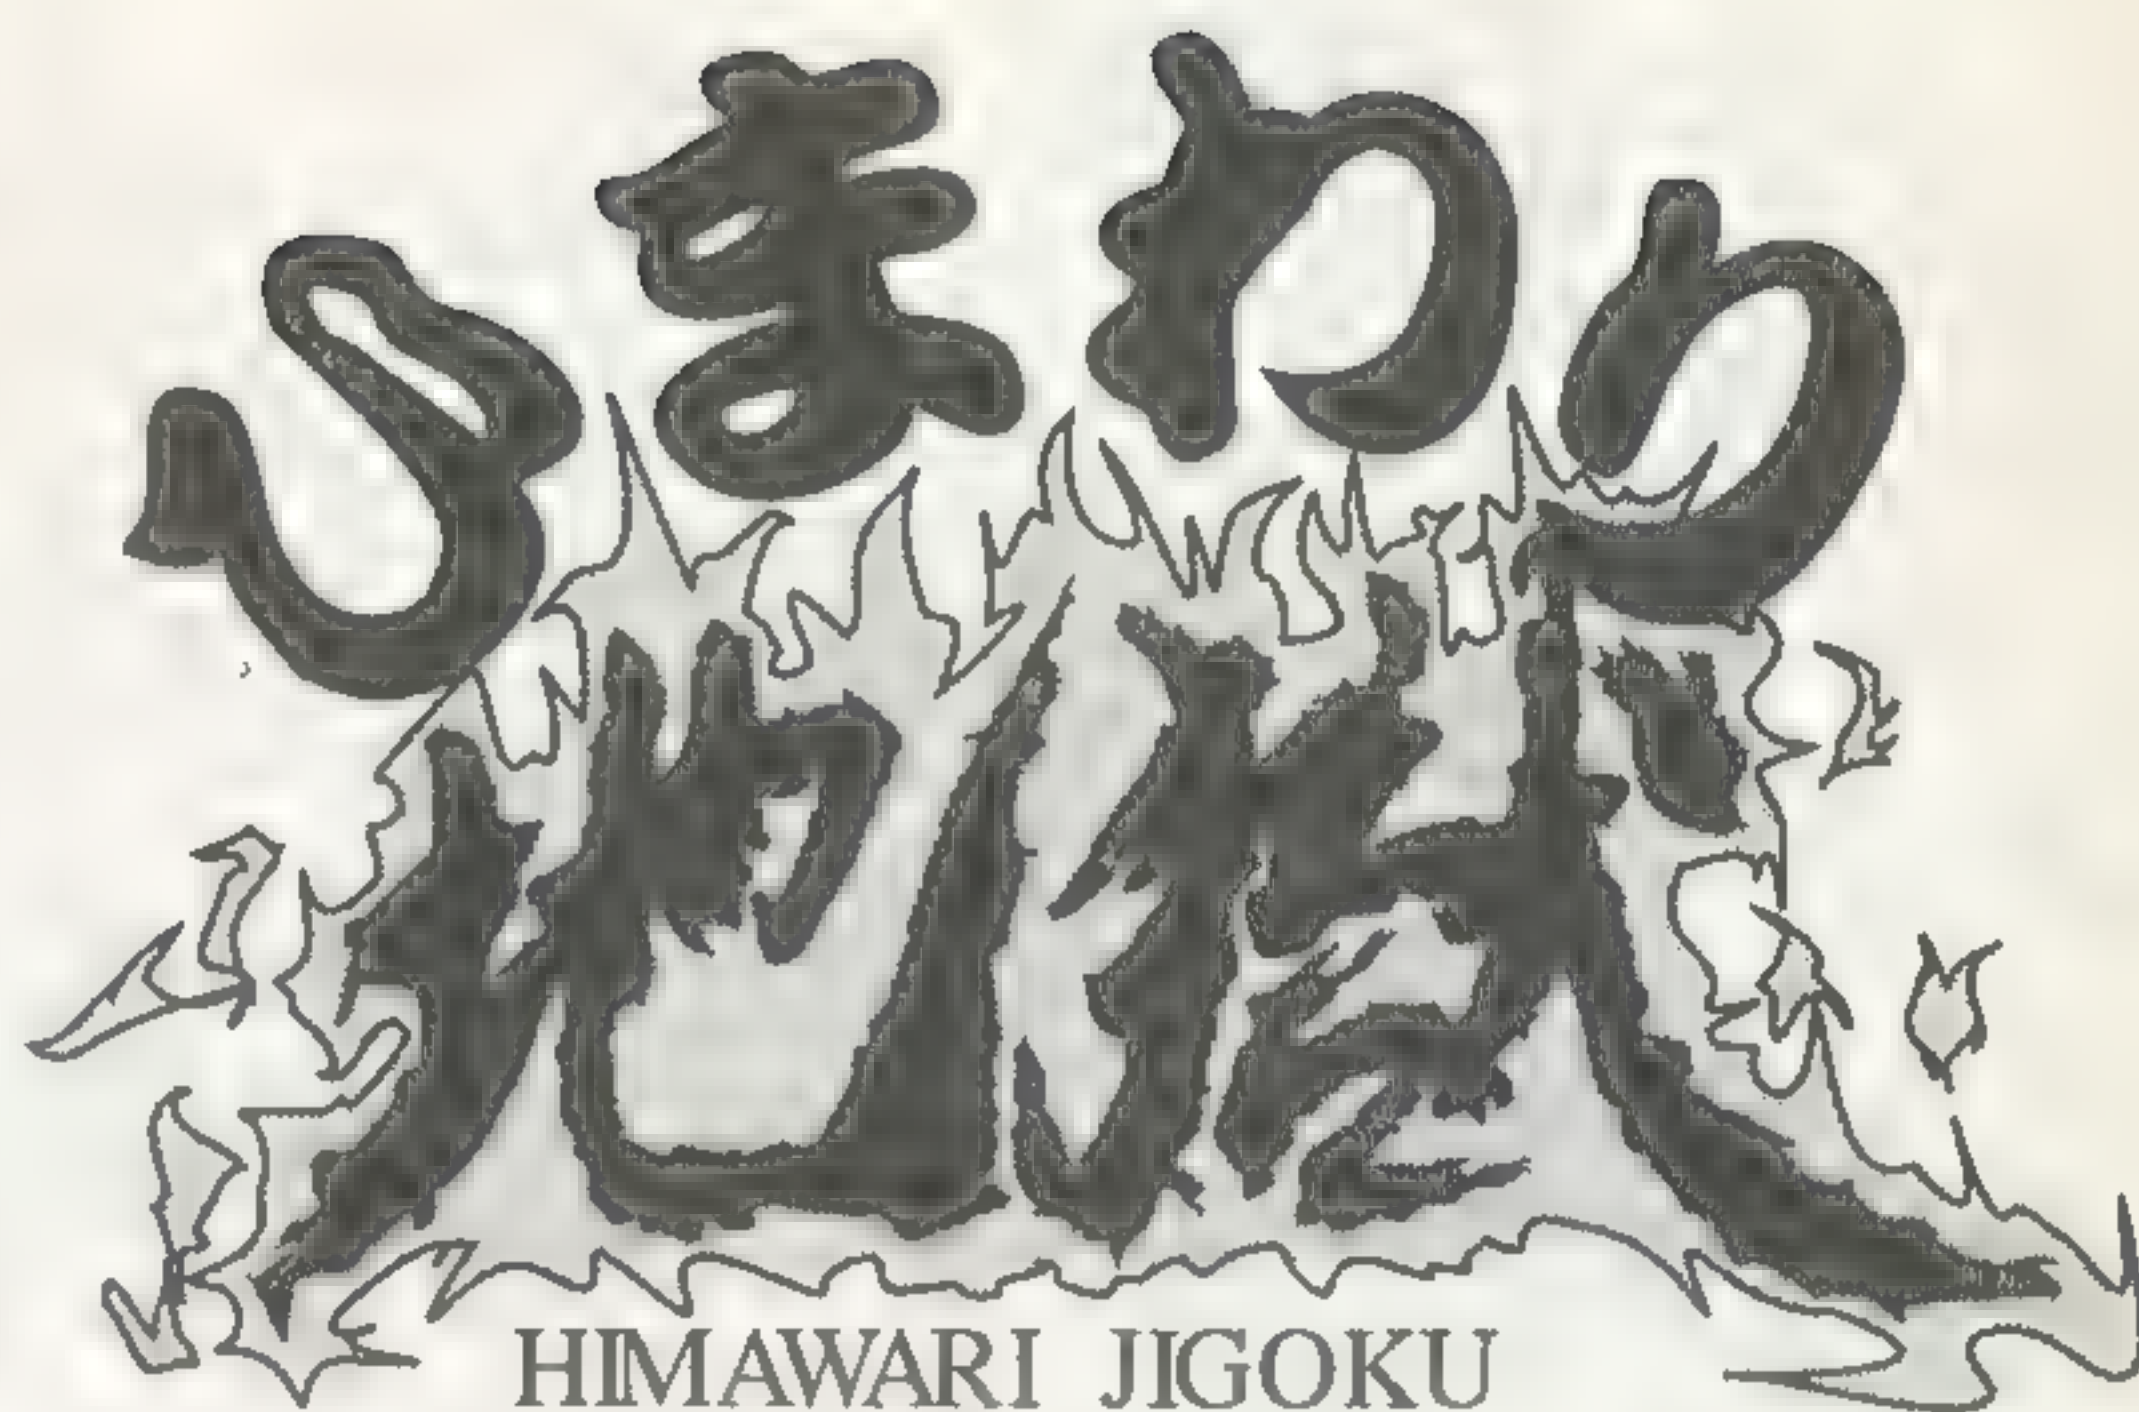 ひまわり
地獄
HIMAWARI JIGOKU